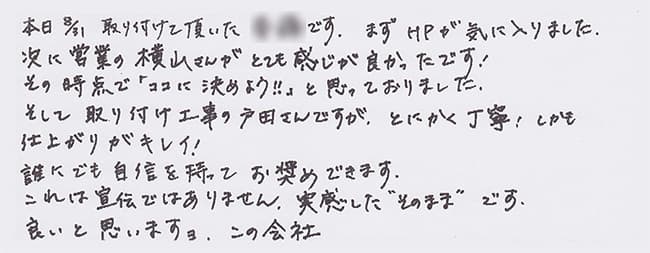 本日8/31 取り付けて頂いた です. まずHPが気に入りました.
次に営業の横山さんがとても感じが良かったです!
その時点で「ココに決めよう!!」と思っておりました.
そして取り付け工事の戸田さんですが, とにかく丁寧! しかも
仕上がりがキレイ!
誰にでも自信を持ってお奨めできます.
これは宣伝ではありません, 実感した"そのまま"です.
良いと思いますョ, この会社